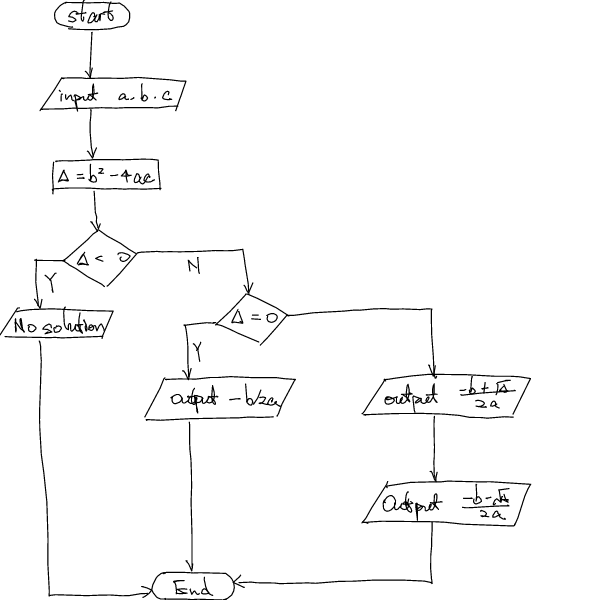 start
input a.b.c
Δ = b² - 4ac
Δ < 0
N
Y
No solution
Δ = 0
Y
output - b/2a
output -b+√Δ/2a
Output -b-√Δ/2a
End